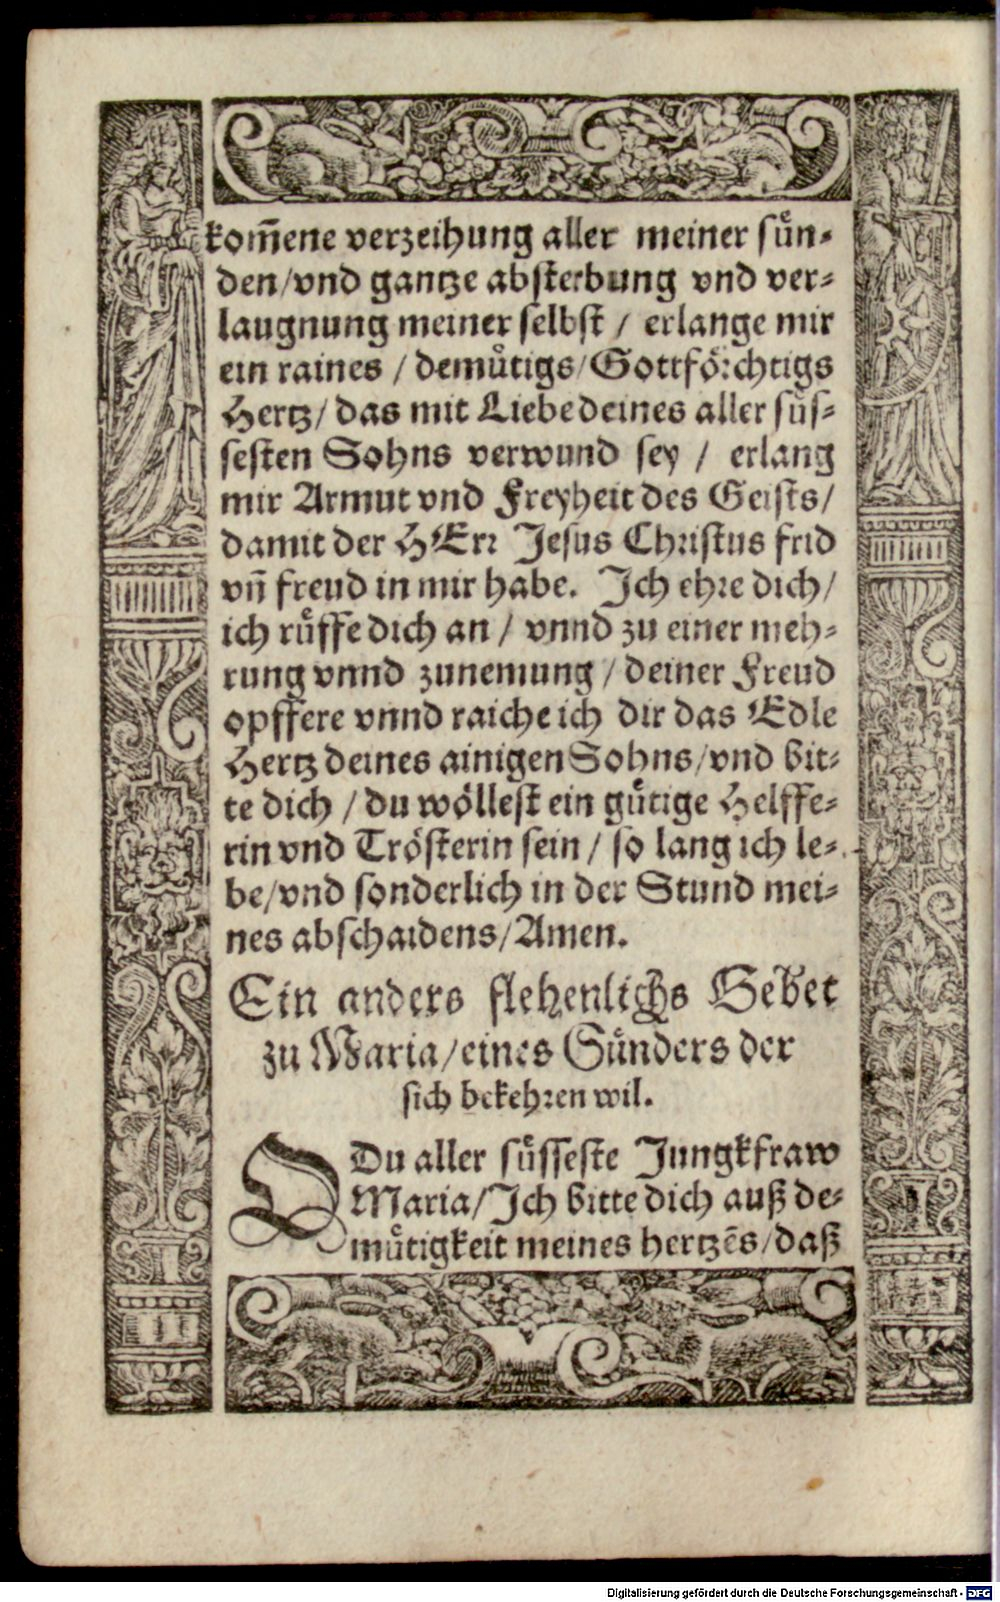 kom̃ene verzeihung aller meiner sün-
den/vnd gantze absterbung vnd ver-
laugnung meiner selbst / erlange mir
ein raines / demuͤtigs/Gottförchtigs
Hertz/ das mit Liebe deines aller süs-
sesten Sohns verwund sey / erlang
mir Armut vnd Freyheit des Geists/
damit der HErr Jesus Christus frid
vn̄ freud in mir habe. Ich ehre dich/
ich ruͤffe dich an / vnnd zu einer meh-
rung vnnd zunemung / deiner Freud
opffere vnnd raiche ich dir das Edle
Hertz deines ainigen Sohns/vnd bit-
te dich / du wöllest ein guͤtige Helffe-
rin vnd Trösterin sein / so lang ich le-
be/vnd sonderlich in der Stund mei-
nes abschaidens/Amen.
Ein anders flehenlichs Gebet
zu Maria/eines Sünders der
sich bekehren wil.
O Du aller süsseste Jungkfraw
Maria/Ich bitte dich auß de-
muͤtigkeit meines hertzēs/daß
Digitalisierung gefördert durch die Deutsche Forschungsgemeinschaft - DFG